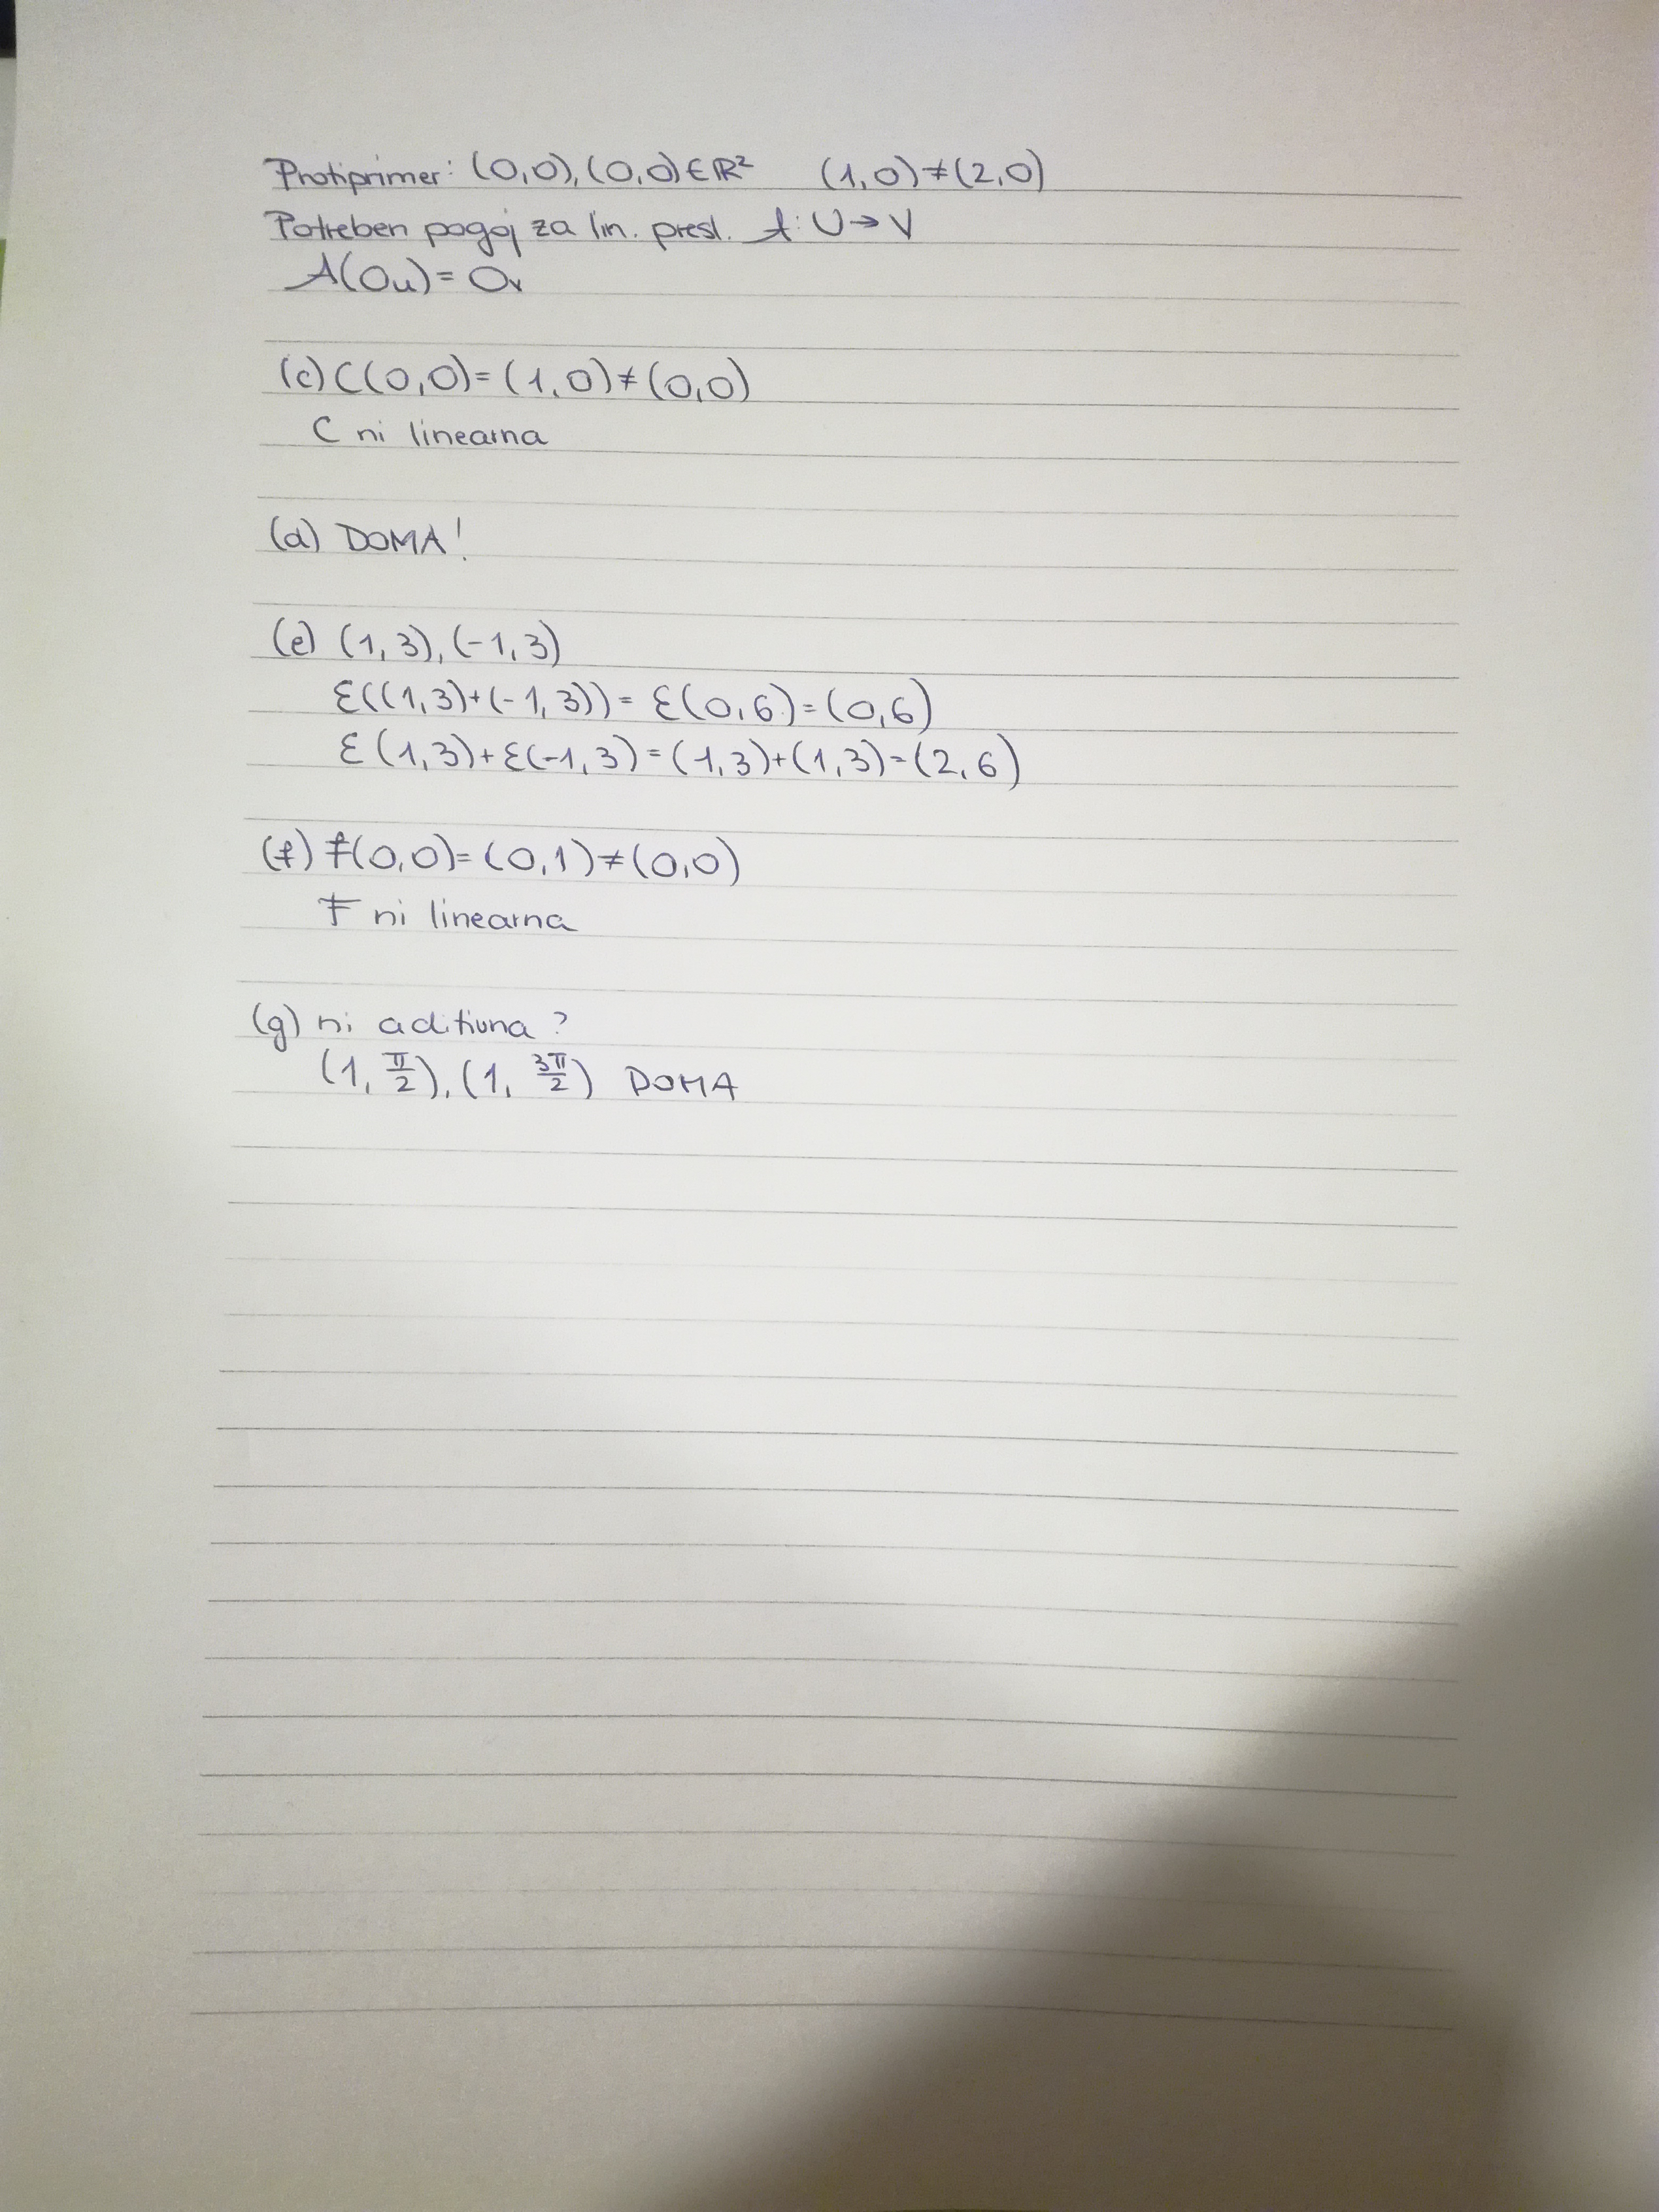 Protiprimer: (0,0), (0,0) ∈ ℝ² (1,0) ≠ (2,0)
Potreben pogoj za lin. presl. A: U → V
A(0u) = 0v
(c) C(0,0) = (1,0) ≠ (0,0)
C ni linearna
(d) DOMA!
(e) (1,3), (-1,3)
ε((1,3)+(-1,3)) = ε(0,6) = (0,6)
ε(1,3)+ε(-1,3) = (1,3)+(1,3) = (2,6)
(f) F(0,0) = (0,1) ≠ (0,0)
F ni linearna
(g) ni aditivna?
(1, π/2), (1, 3π/2) DOMA